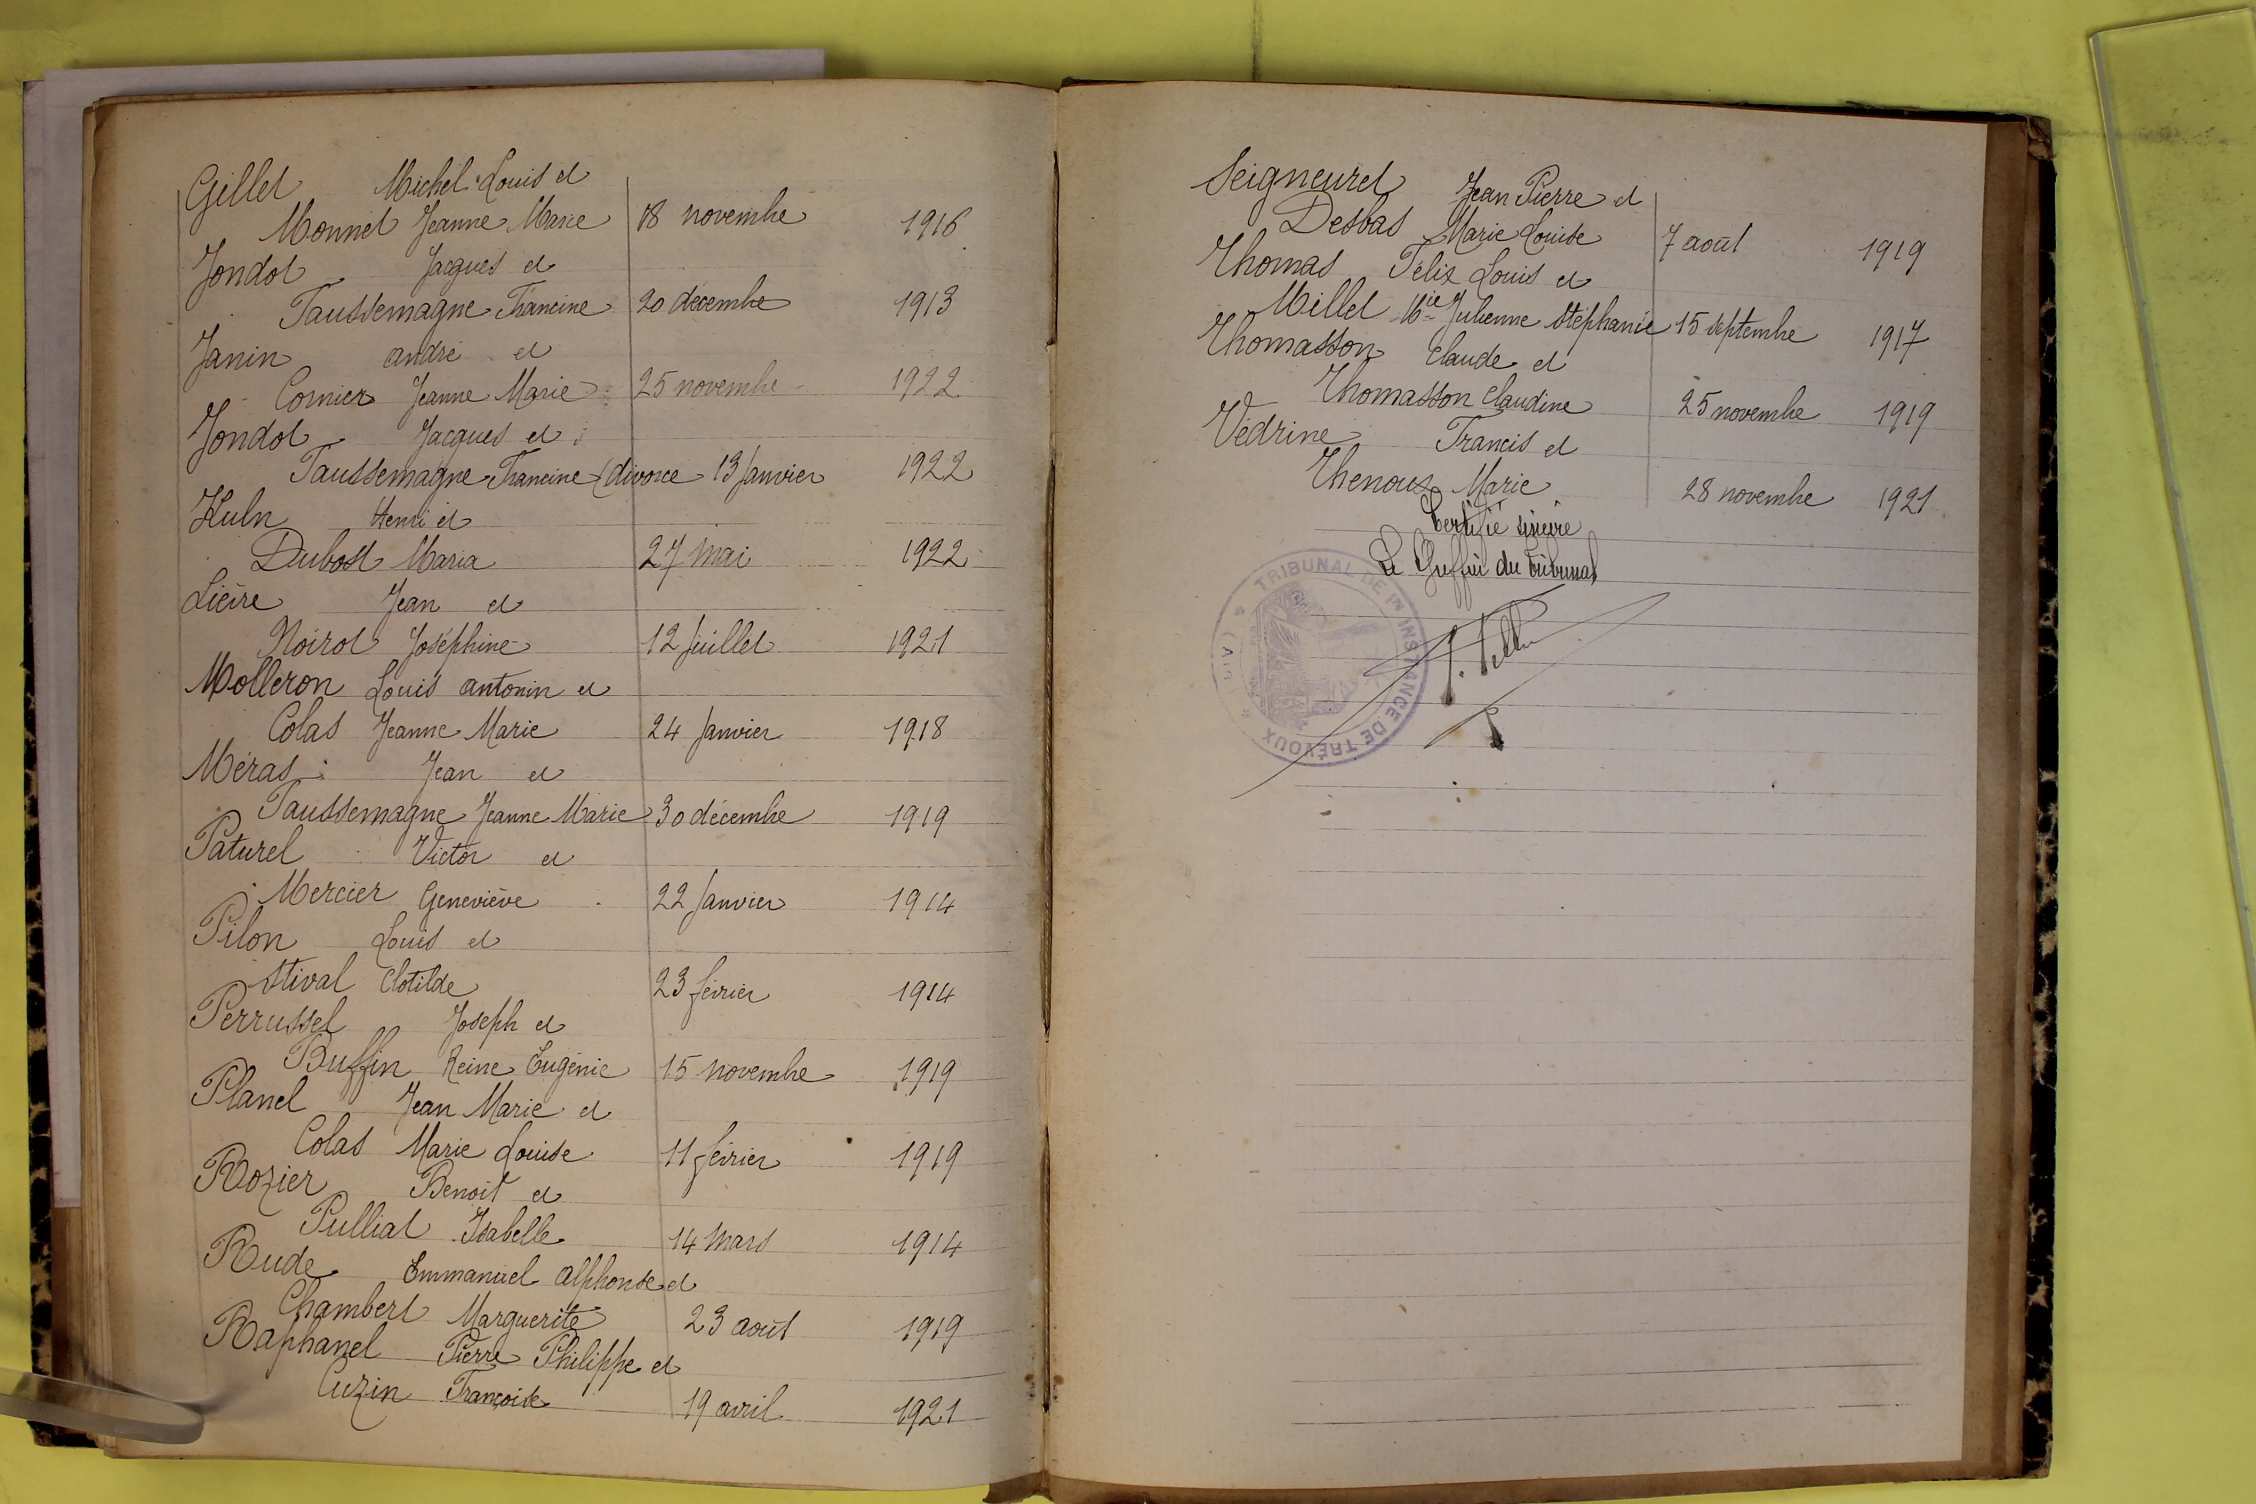 Gillet Michel Louis et
Monnet Jeanne Marie 18 novembre 1916
Jondot Jacques et
Taussemagne Francine 20 décembre 1913
Janin André et
Cornier Jeanne Marie 25 novembre 1922
Jondot Jacques et
Taussemagne Francine (divorce 13 Janvier 1922
Kuln Henri et
Dubost Maria 27 Mai 1922
Lièvre Jean et
Noirot Joséphine 12 Juillet 1921
Molleron Louis Antonin et
Colas Jeanne Marie 24 Janvier 1918
Méras Jean et
Taussemagne Jeanne Marie 30 décembre 1919
Paturel Victor et
Mercier Geneviève 22 Janvier 1914
Pilon Louis et
Stival Clotilde 23 février 1914
Perrussel Joseph et
Buffin Reine Eugénie 15 novembre 1919
Planel Jean Marie et
Colas Marie Louise 11 février 1919
Rozier Benoit et
Pulliat Isabelle 14 Mars 1914
Rude Emmanuel Alphonse et
Chambert Marguerite 23 août 1919
Raphanel Pierre Philippe et
Cuzin Françoise 19 avril 1921
Seigneuret Jean Pierre et
Desbas Marie Louise 7 août 1919
Thomas Félix Louis et
Millet Mie Julienne Stéphanie 15 septembre 1917
Thomasson Claude et
Thomasson Claudine 25 novembre 1919
Védrine Francis et
Thenoux Marie 28 novembre 1921
Certifié sincère
Le Greffier du Tribunal
TRIBUNAL DE 1re INSTANCE DE TRÉVOUX * (AIN) *